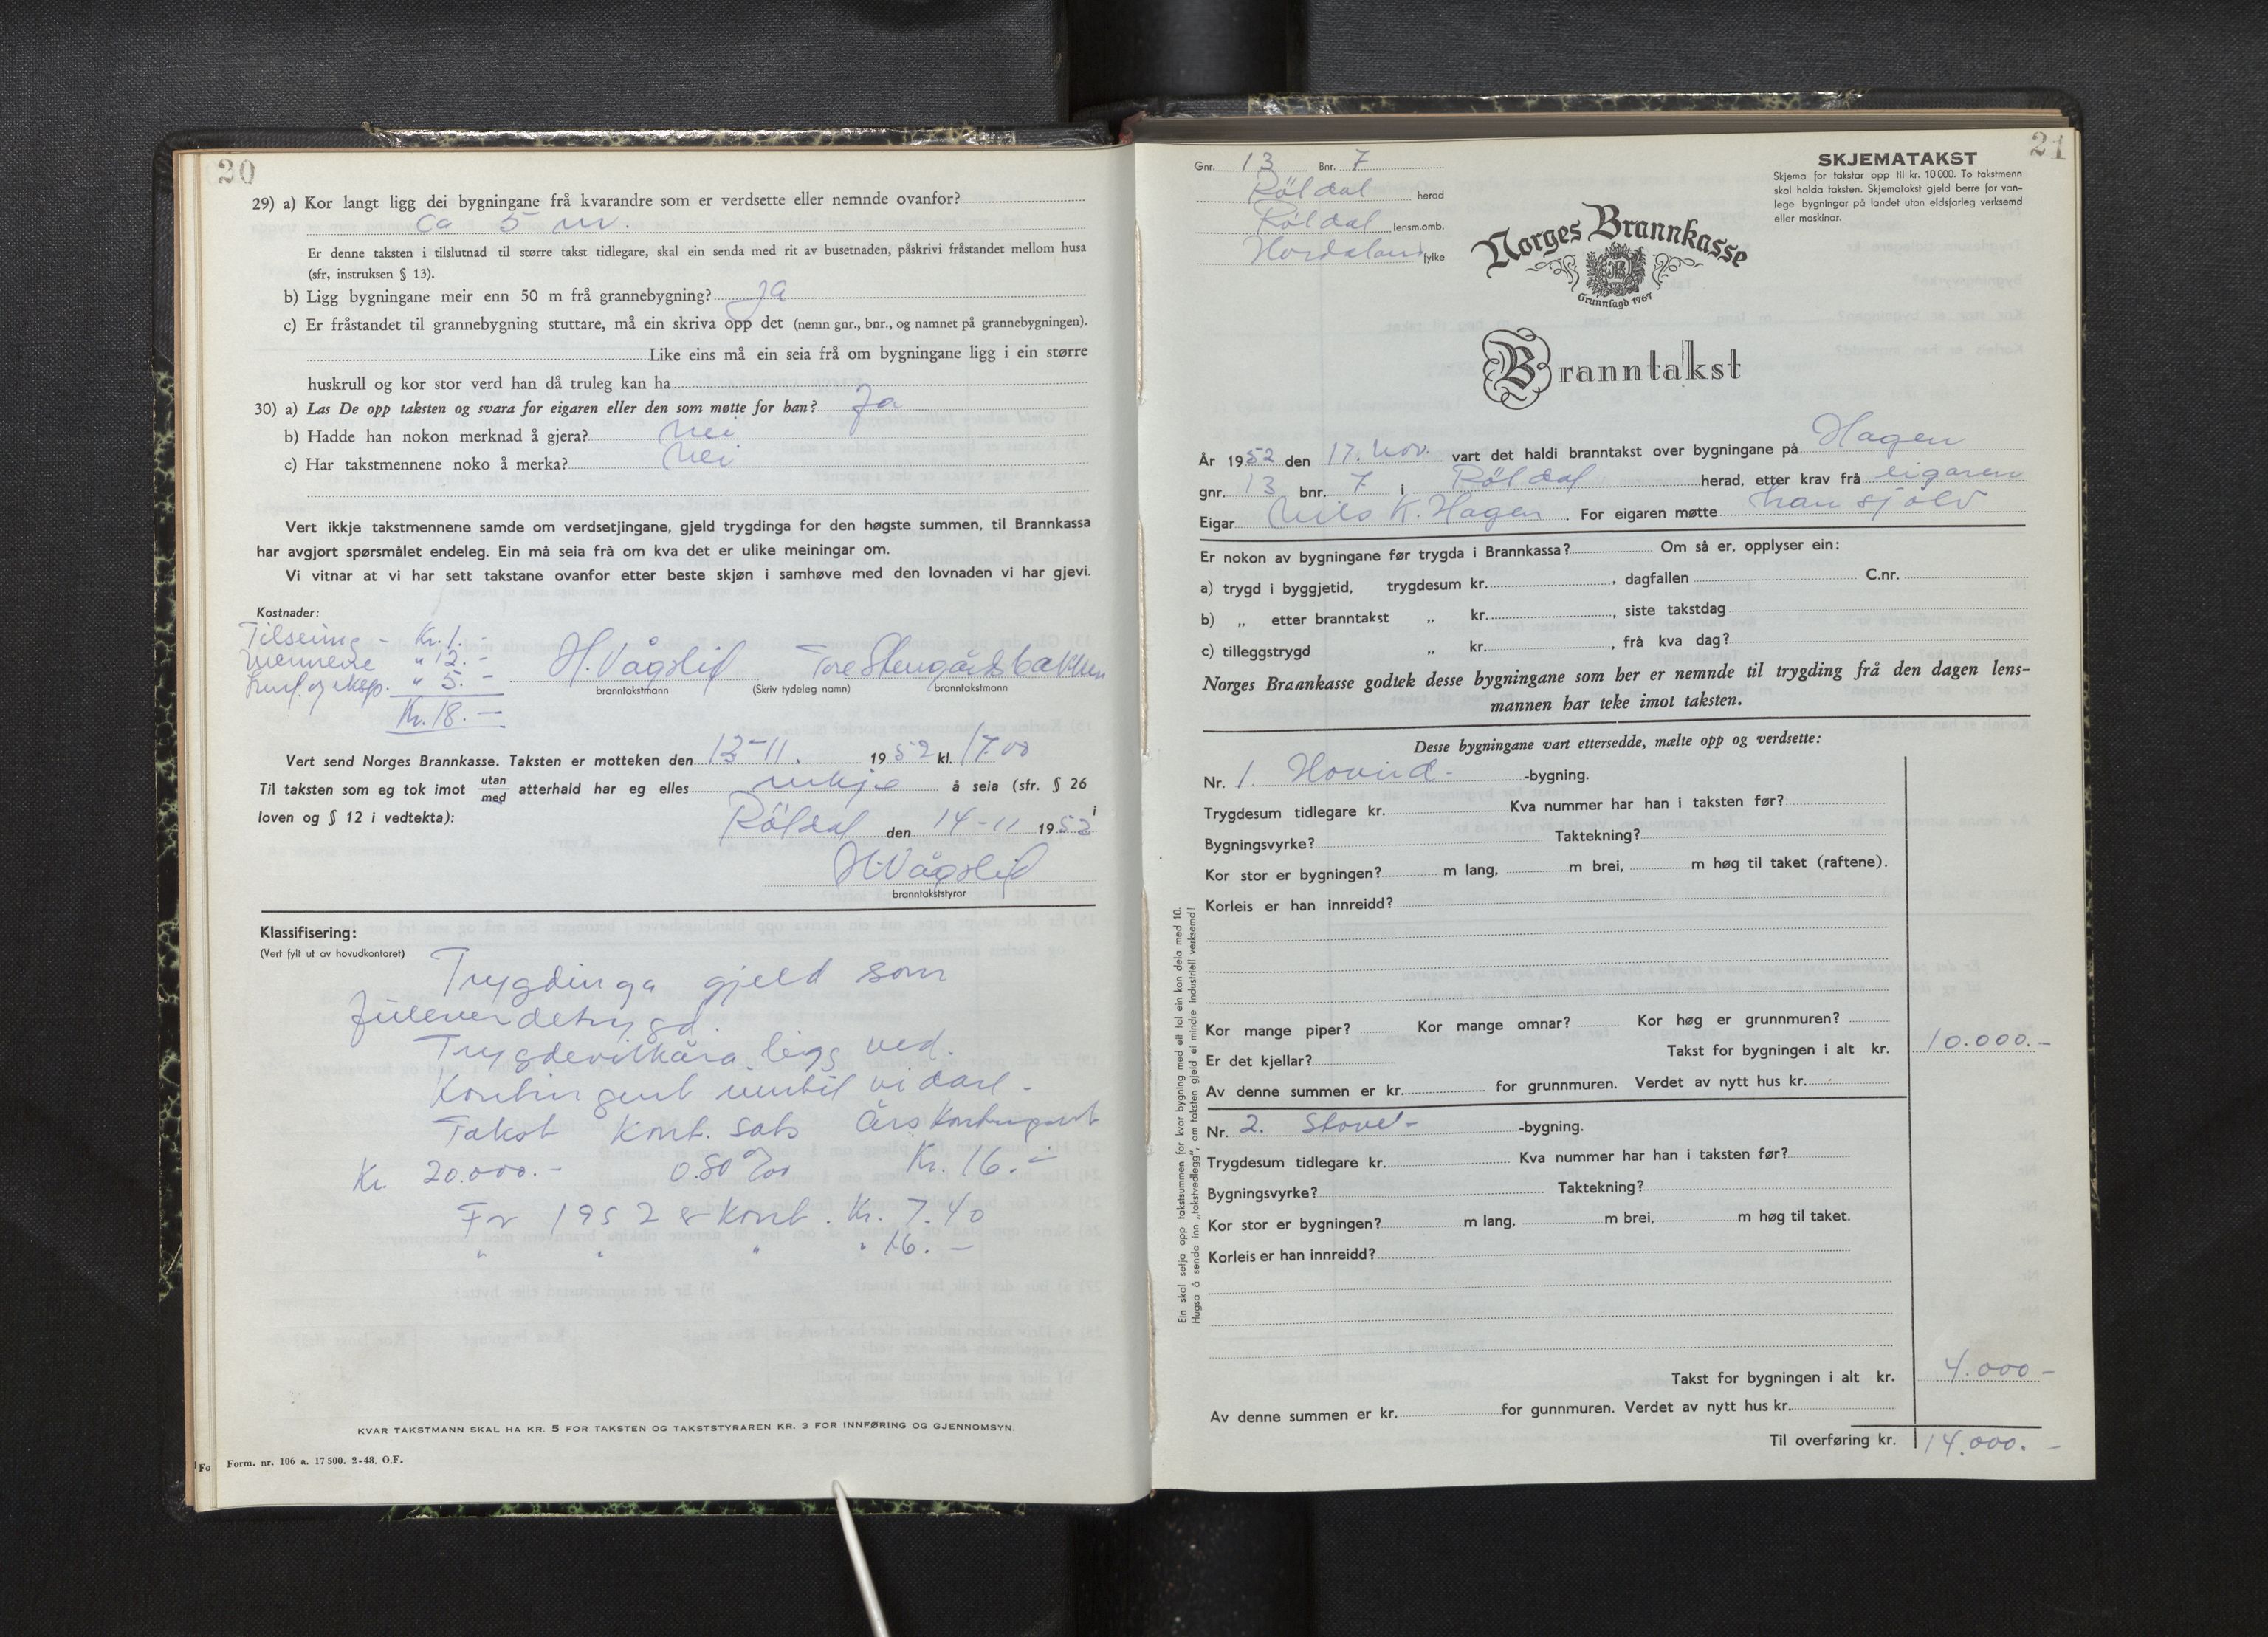 20
29) a) Kor langt ligg dei bygningane frå kvarandre som er verdsette eller nemnde ovanfor?
ca 5 m.
Er denne taksten i tilslutnad til større takst tidlegare, skal ein senda med rit av busetnaden, påskrivi fråstandet mellom husa
(sfr, instruksen § 13).
b) Ligg bygningane meir enn 50 m frå grannebygning? ja
c) Er fråstandet til grannebygning stuttare, må ein skriva opp det (nemn gnr., bnr., og namnet på grannebygningen).
Like eins må ein seia frå om bygningane ligg i ein større
huskrull og kor stor verd han då truleg kan ha
30) a) Las De opp taksten og svara for eigaren eller den som møtte for han? Ja
b) Hadde han nokon merknad å gjera? Nei
c) Har takstmennene noko å merka? Nei
Vert ikkje takstmennene samde om verdsetjingane, gjeld trygdinga for den høgste summen, til Brannkassa
har avgjort spørsmålet endeleg. Ein må seia frå om kva det er ulike meiningar om.
Vi vitnar at vi har sett takstane ovanfor etter beste skjøn i samhøve med den lovnaden vi har gjevi.
Kostnader:
Tilseiing - Kr. 1.-
Mennene " 12.-
Innf. og eksp. " 5.-
Kr. 18.-
H. Vågslid Tore Stengårdsbakken
branntakstmann (Skriv tydeleg namn) branntakstmann
Vert send Norges Brannkasse. Taksten er motteken den 13-11. 1952 kl. 17.00
Til taksten som eg tok imot utan/med atterhald har eg elles inkje å seia (sfr. § 26 i
loven og § 12 i vedtekta):
Röldal den 14-11 1952
H Vågslid
branntakststyrar
Klassifisering:
(Vert fylt ut av hovudkontoret)
Trygdinga gjeld som
fulleverdetrygd.
Trygdevilkåra ligg ved.
Kontingent inntil vidare -
Takst Kont. sats Årskontingent
Kr. 20.000.- 0.80 ‰ Kr. 16.-
For 1952 er kont. Kr. 7.40
" " " " 16.-
KVAR TAKSTMANN SKAL HA KR. 5 FOR TAKSTEN OG TAKSTSTYRAREN KR. 3 FOR INNFØRING OG GJENNOMSYN.
Fo Form. nr. 106 a. 17 500. 2-48. O.F.
21
Gnr. 13 Bnr. 7
Röldal herad
Röldal lensm.omb.
Hordaland fylke
SKJEMATAKST
Skjema for takstar opp til kr. 10 000. To takstmenn
skal halda taksten. Skjematakst gjeld berre for van-
lege bygningar på landet utan eldsfarleg verksemd
eller maskinar.
Norges Brannkasse
Grunnlagd 1767
Branntakst
År 1952 den 17. nov. vart det haldi branntakst over bygningane på Hagen
gnr. 13 bnr. 7 i Röldal herad, etter krav frå eigaren
Eigar Nils K. Hagen. For eigaren møtte han sjölv
Er nokon av bygningane før trygda i Brannkassa? Om så er, opplyser ein:
a) trygd i byggjetid, trygdesum kr. , dagfallen C.nr.
b) „ etter branntakst „ kr. , siste takstdag
c) tilleggstrygd „ kr. , frå kva dag?
Norges Brannkasse godtek desse bygningane som her er nemnde til trygding frå den dagen lens-
mannen har teke imot taksten.
Desse bygningane vart ettersedde, mælte opp og verdsette:
Nr. 1. Hovud- -bygning.
Trygdesum tidlegare kr. Kva nummer har han i taksten før?
Bygningsvyrke? Taktekning?
Kor stor er bygningen? m lang, m brei, m høg til taket (raftene).
Korleis er han innreidd?
Kor mange piper? Kor mange omnar? Kor høg er grunnmuren?
Er det kjellar? Takst for bygningen i alt kr. 10.000.-
Av denne summen er kr. for grunnmuren. Verdet av nytt hus kr.
Nr. 2. Stove- -bygning.
Trygdesum tidlegare kr. Kva nummer har han i taksten før?
Bygningsvyrke? Taktekning?
Kor stor er bygningen? m lang, m brei, m høg til taket.
Korleis er han innreidd?
Takst for bygningen i alt kr. 4.000-
Av denne summen er kr. for gunnmuren. Verdet av nytt hus kr.
Til overføring kr. 14.000.-
Ein skal setja opp takstsummen for kvar bygning med eit tal ein kan dela med 10.
Hugsa å senda inn „takstvedlegg", om taksten gjeld ei mindre industriell verksemd!